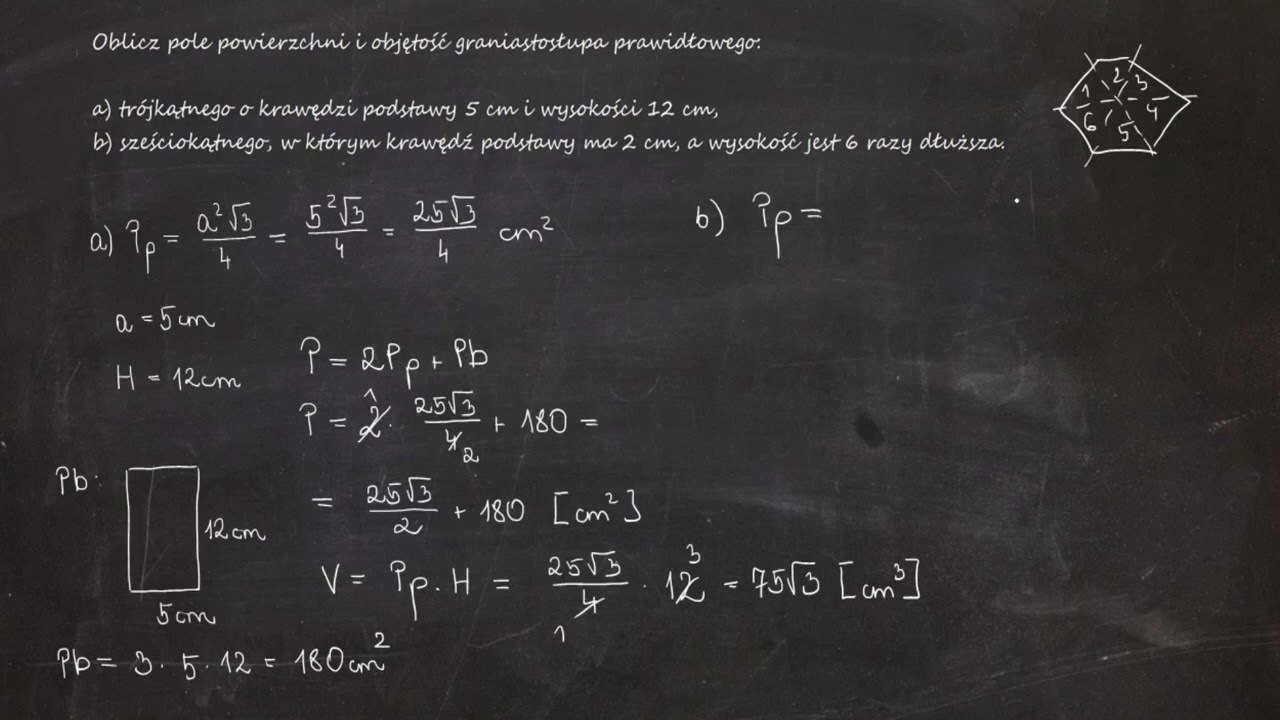 Oblicz pole powierzchni i objętość graniastosłupa prawidłowego:
a) trójkątnego o krawędzi podstawy 5 cm i wysokości 12 cm,
b) sześciokątnego, w którym krawędź podstawy ma 2 cm, a wysokość jest 6 razy dłuższa.
1 2 3 4 5 6
a) Pp = a²√3/4 = 5²√3/4 = 25√3/4 cm²
a = 5cm
H = 12cm
P = 2Pp + Pb
P = 2 1 · 25√3/4 2 + 180 =
= 25√3/2 + 180 [cm²]
V = Pp · H = 25√3/4 1 · 12 3 = 75√3 [cm³]
Pb:
12cm
5cm
Pb = 3 · 5 · 12 = 180cm²
b) Pp =